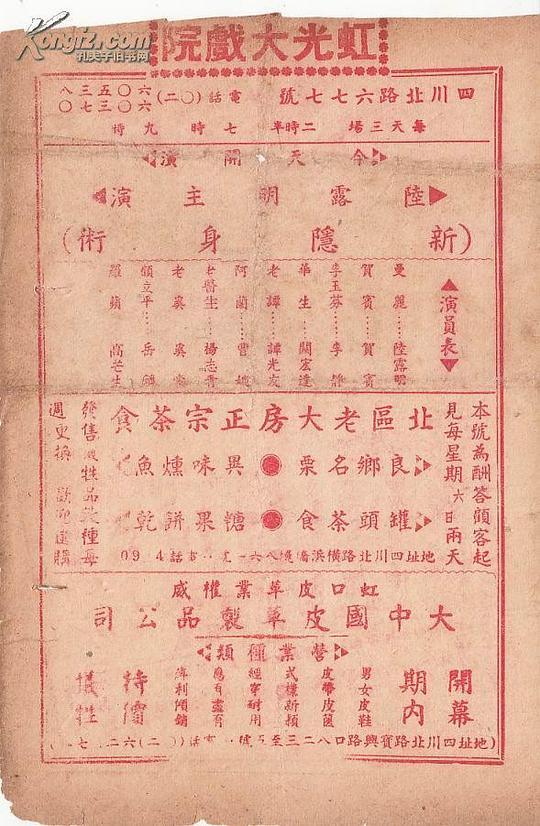 Kongfz.com
孔夫子旧书网
虹光大戲院
四川北路六七七號 電話(〇二)六〇五三八 六〇三七〇
每天三場 二時半 七時 九時
今天開演
陸露明主演
(新隱身術)
演員表
曼麗……陸露明
賀賓……賀賓
李玉芬……李靜
華生……關宏達
老譚……譚光友
阿蘭……曹娥
老醫生……楊志青
老奚……奚
顧立平……岳
羅蘋……高芒生
北區老大房正宗茶食
良鄉名栗 異味燻魚
罐頭茶食 糖果餅乾
地址四川北路橫浜橋
本號為酬答顧客起
見每星期六日兩天
發售犧牲品幾種每
週更換 歡迎選購
虹口皮革業權威
大中國皮革製品公司
營業種類
開幕期內
男女皮鞋
皮帶皮篋
式樣新穎
經穿耐用
應有盡有
薄利傾銷
特價犧牲
地址四川北路寶興路口八二三至五號